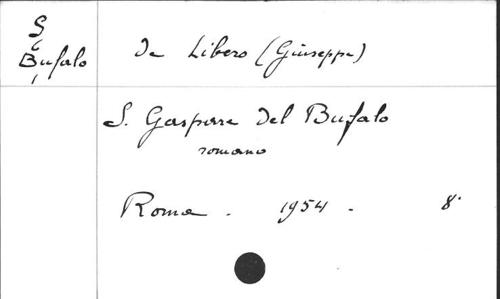 S
Bufalo
De Libero (Giuseppe)
S. Gaspare Del Bufalo
romano
Roma . 1954 . 8°